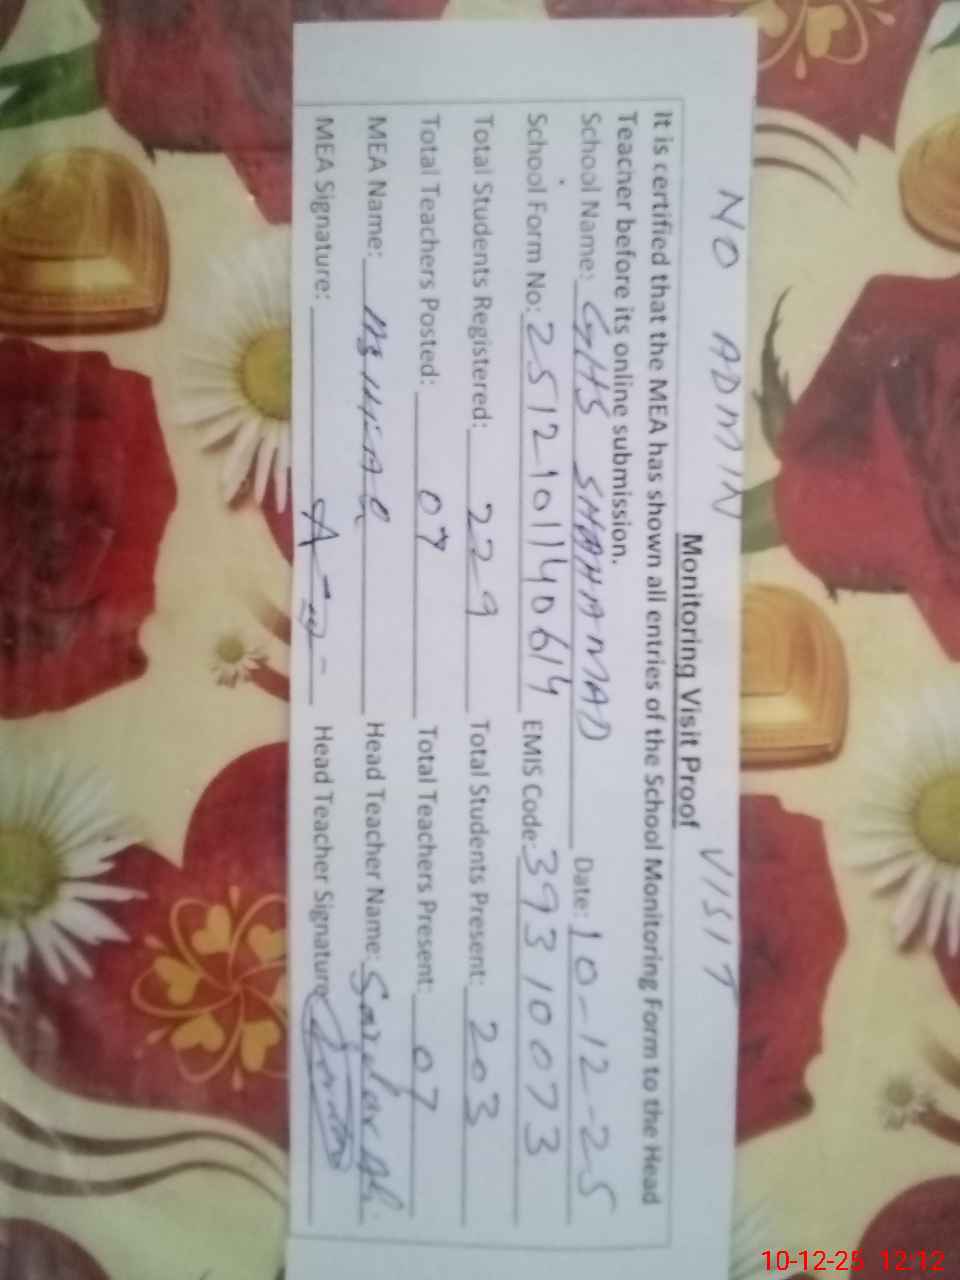 NO ADMIN VISIT
Monitoring Visit Proof
It is certified that the MEA has shown all entries of the School Monitoring Form to the Head
Teacher before its online submission.
School Name: GHS SHAHAMAD Date: 10-12-25
School Form No: 2512101140614 EMIS Code: 39310073
Total Students Registered: 229 Total Students Present: 203
Total Teachers Posted: 07 Total Teachers Present: 07
MEA Name: Head Teacher Name: Sardar Ali
MEA Signature: Head Teacher Signature
10-12-25 12:12